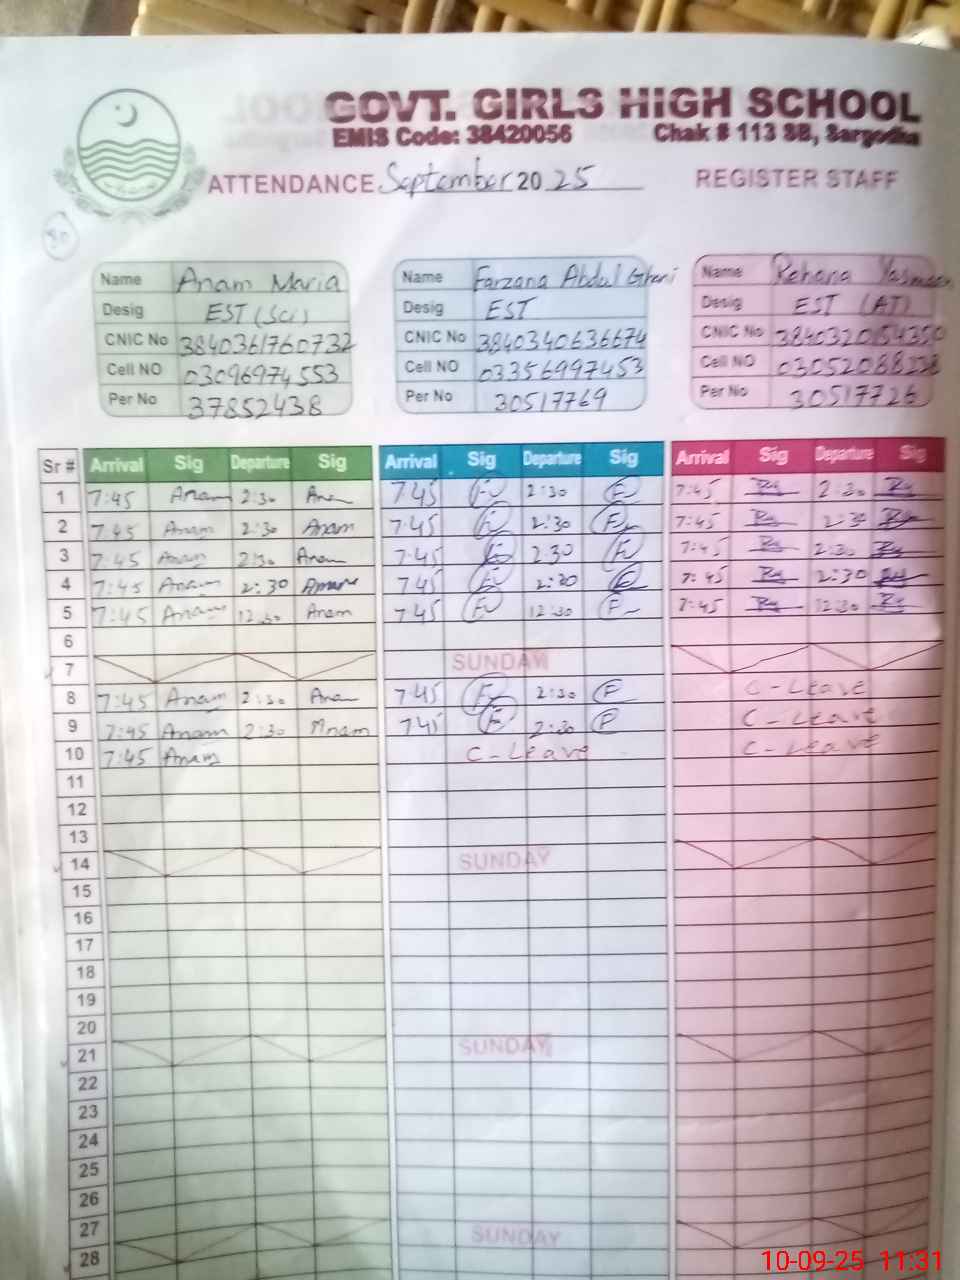 GOVT. GIRLS HIGH SCHOOL
EMIS Code: 38420056 Chak # 113 SB, Sargodha
ATTENDANCE September 2025 REGISTER STAFF
30
Name Anam Maria Name Farzana Abdul Ghani Name Rehana Yasmeen
Desig EST (Sci) Desig EST Desig EST (AT)
CNIC No 3840361760732 CNIC No 3840340636674 CNIC No
Cell NO 03096974553 Cell NO 03356997453 Cell NO
Per No 37852438 Per No 30517769 Per No 30517726
Sr # Arrival Sig Departure Sig Arrival Sig Departure Sig Arrival Sig Departure Sig
1 7:45 Anam 2:30 Anam 7 45 2:30 7:45 2:30
2 7:45 Anam 2:30 Anam 7 45 2:30 7:45 2:30
3 7:45 Anam 2:30 Anam 7 45 2:30 7:45 2:30
4 7:45 Anam 2:30 Anam 7 45 2:30 7:45 2:30
5 7:45 Anam 12:30 Anam 7 45 12:30 7:45 12:30
6
7 SUNDAY
8 7:45 Anam 2:30 Anam 7 45 2:30 C-Leave
9 7:45 Anam 2:30 Anam 7 45 2:30 C-Leave
10 7:45 Anam C-Leave C-Leave
11
12
13
14 SUNDAY
15
16
17
18
19
20
21 SUNDAY
22
23
24
25
26
27 SUNDAY
28
10-09-25 11:31